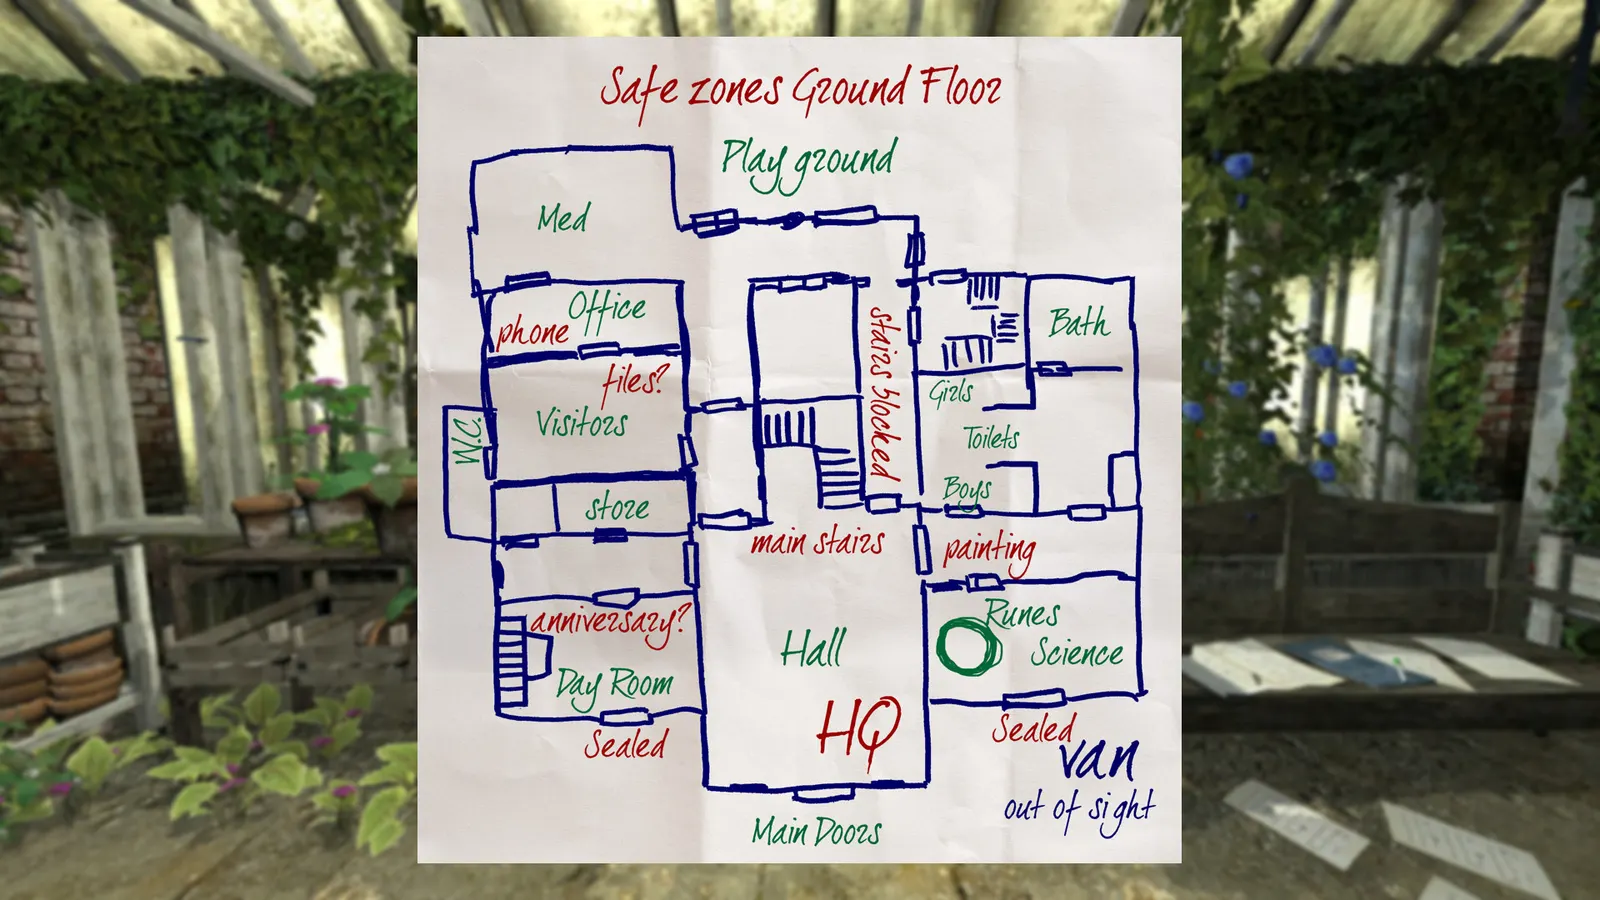 Safe zones Ground Floor
Play ground
Med
Office
phone
files?
Visitors
W.C.
store
stairs blocked
Bath
Girls
Toilets
Boys
main stairs
painting
anniversary?
Day Room
Sealed
Hall
HQ
Runes
Science
Sealed
van
out of sight
Main Doors